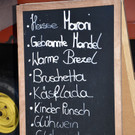 • Heisse Maroni
• Gebrannte Mandel
• Warme Brezel
• Bruschetta
• Käsflada
• Kinder Punsch
• Glühwein